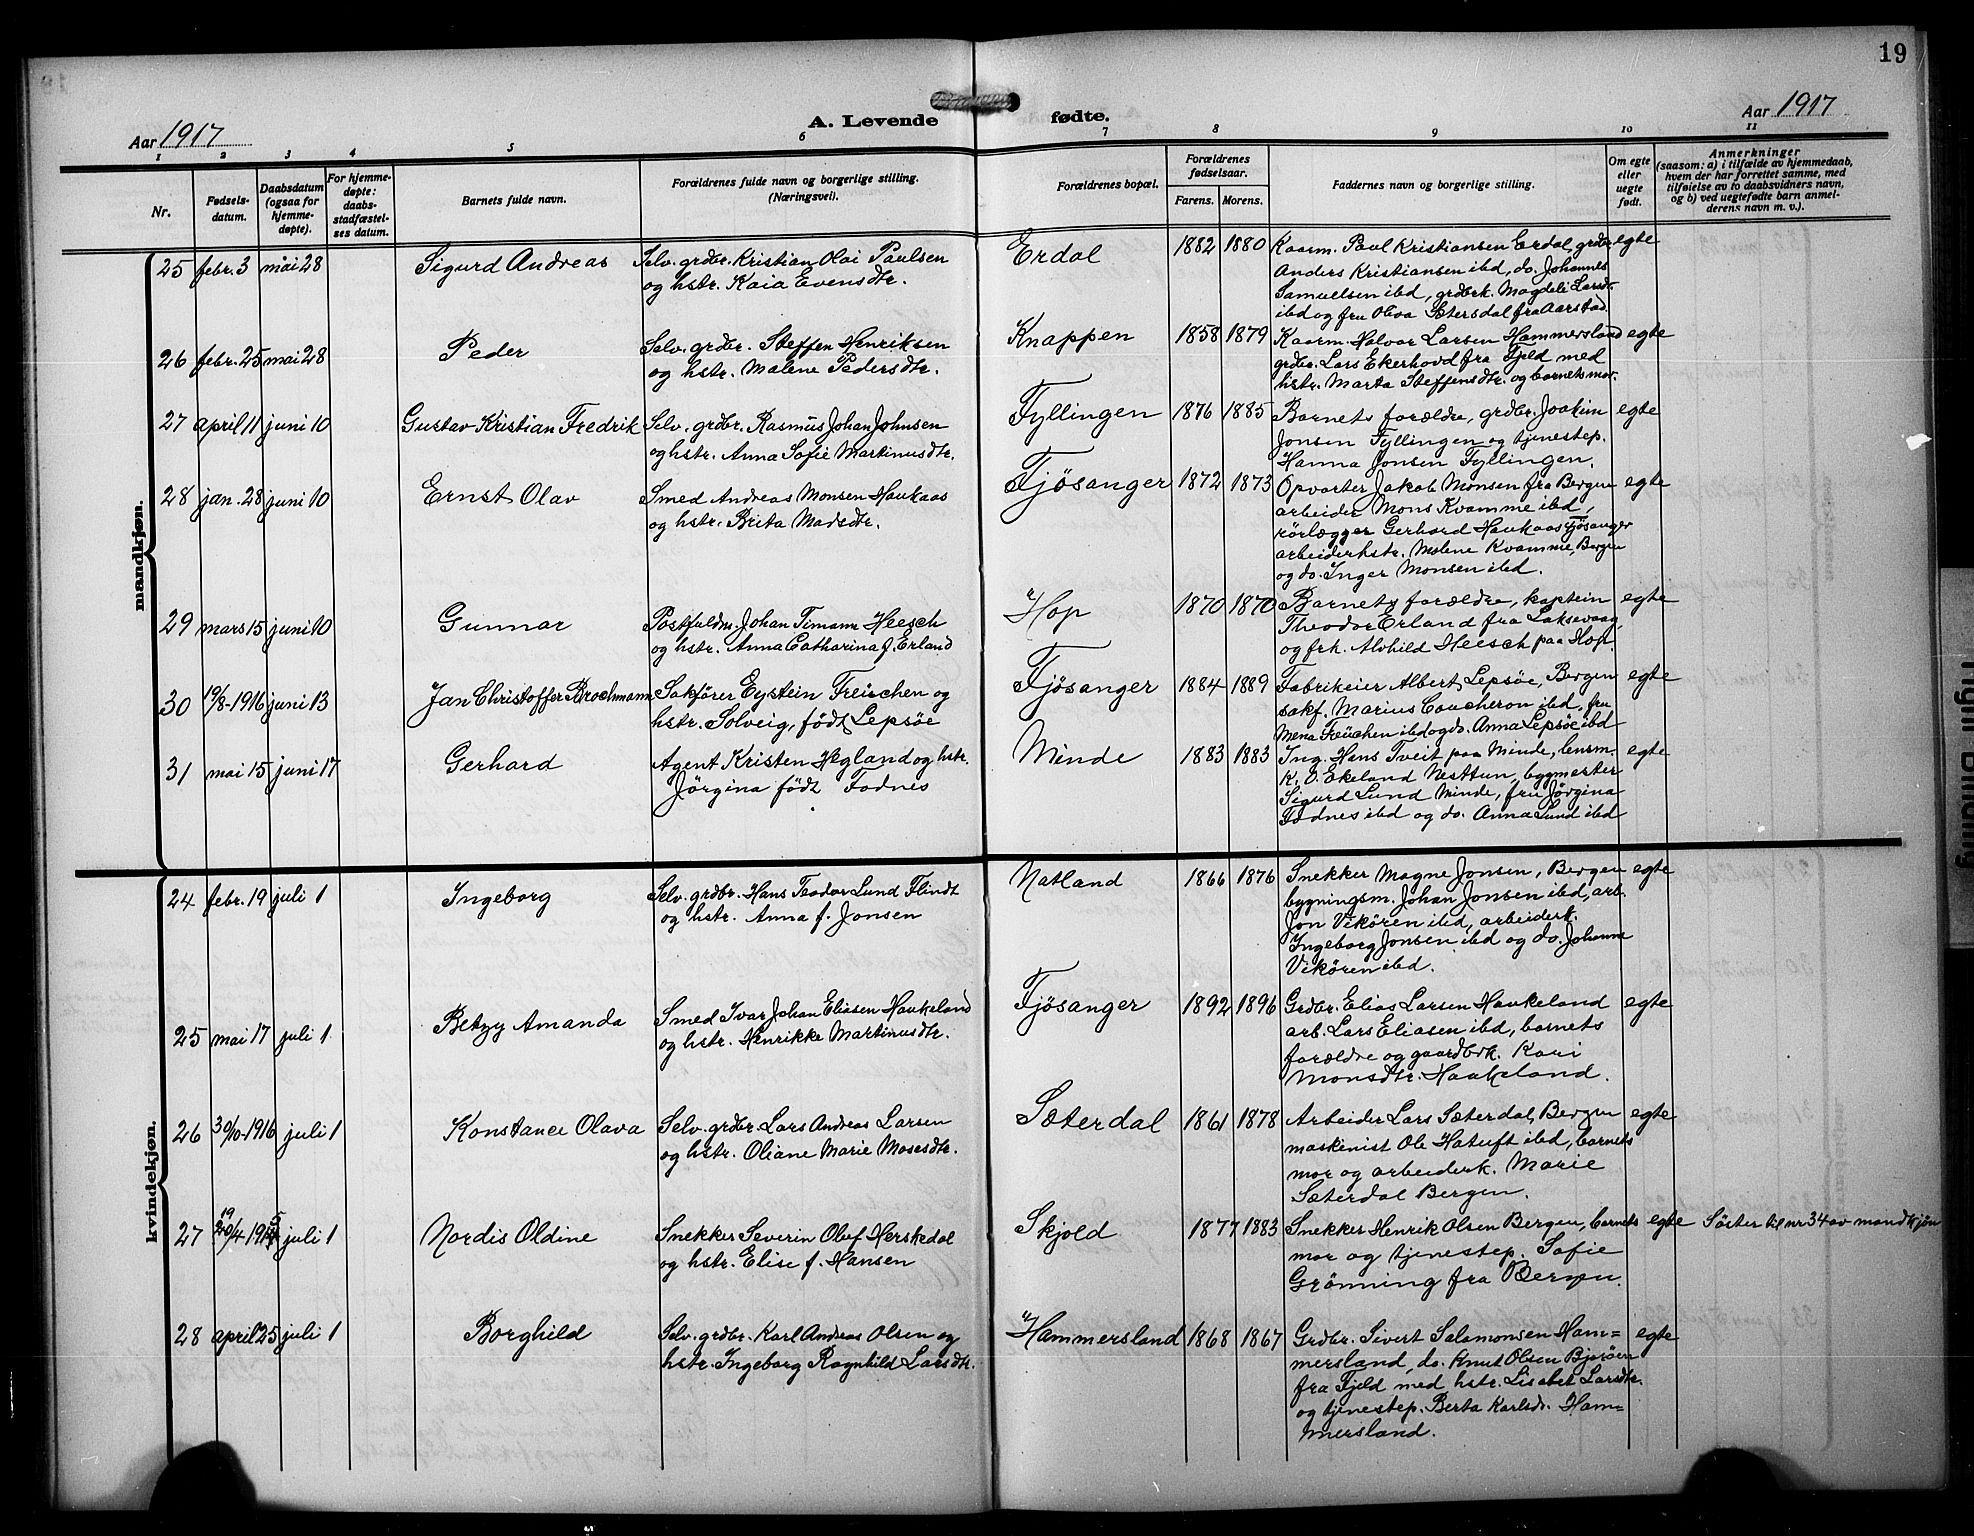 19
Aar 1917
A. Levende fødte.
Aar 1917
1 2 3 4 5 6 7 8 9 10 11
Nr.
Fødsels-
datum.
Daabsdatum
(ogsaa for
hjemme-
døpte).
For hjemme-
døpte:
daabs-
stadfæstel-
ses datum.
Barnets fulde navn.
Forældrenes fulde navn og borgerlige stilling.
(Næringsvei).
Forældrenes bopæl.
Forældrenes
fødselsaar.
Farens. Morens.
Faddernes navn og borgerlige stilling.
Om egte
eller
uegte
født.
Anmerkninger
(saasom: a) i tilfælde av hjemmedaab,
hvem der har forrettet samme, med
tilføielse av to daabsvidners navn,
og b) ved uegtefødte barn anmel-
derens navn m. v.).
mandkjøn.
25 febr. 3 mai 28 Sigurd Andreas Selv. grdbr. Kristian Olai Paulsen
og hstr. Kaia Evensdtr.
Erdal 1882 1880 Kaarm. Paul Kristiansen Erdal, grdbr. egte
Anders Kristiansen ibd, do. Johannes
Samuelsen ibd, grdbrk. Magdeli Larsdtr.
ibd og fru Olava Sætersdal fra Aarstad
26 febr. 25 mai 28 Peder Selv. grdbr. Steffen Henriksen
og hstr. Malene Pedersdtr.
Knappen 1858 1879 Kaarm. Halvor Larsen Hammersland egte
grdbr. Lars Ekerhovd fra Fjeld med
hstr. Marta Steffensdtr. og barnets mor.
27 april 11 juni 10 Gustav Kristian Fredrik Selv. grdbr. Rasmus Johan Johnsen
og hstr. Anna Sofie Martinusdtr.
Fyllingen 1876 1885 Barnets forældre, grdbr. Joakim egte
Jonsen Fyllingen og tjenestep.
Hanna Jonsen Fyllingen.
28 jan. 28 juni 10 Ernst Olav Smed Andreas Monsen Haukaas
og hstr. Brita Madsdtr.
Fjösanger 1872 1873 Opvarter Jakob Monsen fra Bergen egte
arbeider Mons Kvamme ibd,
rörlægger Gerhard Haukaas Fjösanger
arbeiderhstr. Malene Kvamme, Bergen
og do. Inger Monsen ibd.
29 mars 15 juni 10 Gunnar Postfuldm. Johan Timann Heesch
og hstr. Anna Catharina f. Erland
Hop 1870 1870 Barnets forældre, kaptein egte
Theodor Erland fra Laksevaag
og frk. Alvhild Heesch paa Hop.
30 19/8-1916 juni 13 Jan Christoffer Brochmann Sakfører Eystein Freüchen og
hstr. Solveig, født Lepsöe
Fjösanger 1884 1889 Fabrikeier Albert Lepsöe, Bergen egte
sakf. Marius Coucheron ibd, fru
Mena Freüchen ibd og do. Anna Lepsöe ibd
31 mai 15 juni 17 Gerhard Agent Kristen Hegland og hstr.
Jörgina født Fodnes
Minde 1883 1883 Ing. Hans Tveit paa Minde, lensm. egte
K. O. Ekeland Nesttun, bygmester
Sigurd Lund Minde, fru Jörgina
Fodnes ibd og do. Anna Lund ibd
kvindekjøn.
24 febr. 19 juli 1 Ingeborg Selv. grdbr. Hans Teodor Lund Flindt
og hstr. Anna f. Jonsen
Natland 1866 1876 Snekker Magne Jonsen, Bergen egte
bygningsm. Johan Jonsen ibd, arb.
Jon Vikören ibd, arbeiderk.
Ingeborg Jonsen ibd og do. Johanne
Vikören ibd.
25 mai 17 juli 1 Betzy Amanda Smed Ivar Johan Eliasen Haukeland
og hstr. Henrikke Martinusdtr.
Fjösanger 1892 1896 Grdbr. Elias Larsen Haukeland egte
arb. Lars Eliasen ibd, barnets
forældre og gaardbrk. Kari
Monsdtr. Haukeland.
26 30/10-1916 juli 1 Konstance Olava Selv. grdbr. Lars Andreas Larsen
og hstr. Oliane Marie Mosesdtr.
Sæterdal 1861 1878 Arbeider Lars Sæterdal, Bergen egte
maskinist Ole Hatuft ibd, barnets
mor og arbeiderk. Marie
Sæterdal Bergen.
27 19/4 1915 juli 1 Nordis Oldine Snekker Severin Oluf Herskedal
og hstr. Elise f. Hansen
Skjold 1877 1883 Snekker Henrik Olsen Bergen, barnets egte Söster til nr 34 av mandkjön
mor og tjenestep. Sofie
Grönning fra Bergen.
28 april 25 juli 1 Borghild Selv. grdbr. Karl Andreas Olsen og
hstr. Ingeborg Ragnhild Larsdtr.
Hammersland 1868 1867 Grdbr. Sivert Salamonsen Ham= egte
mersland, do. Knut Olsen Bjorøen
fra Fjeld med hstr. Lisabet Larsdtr.
og tjenestep. Berta Karlsdr. Ham=
mersland.